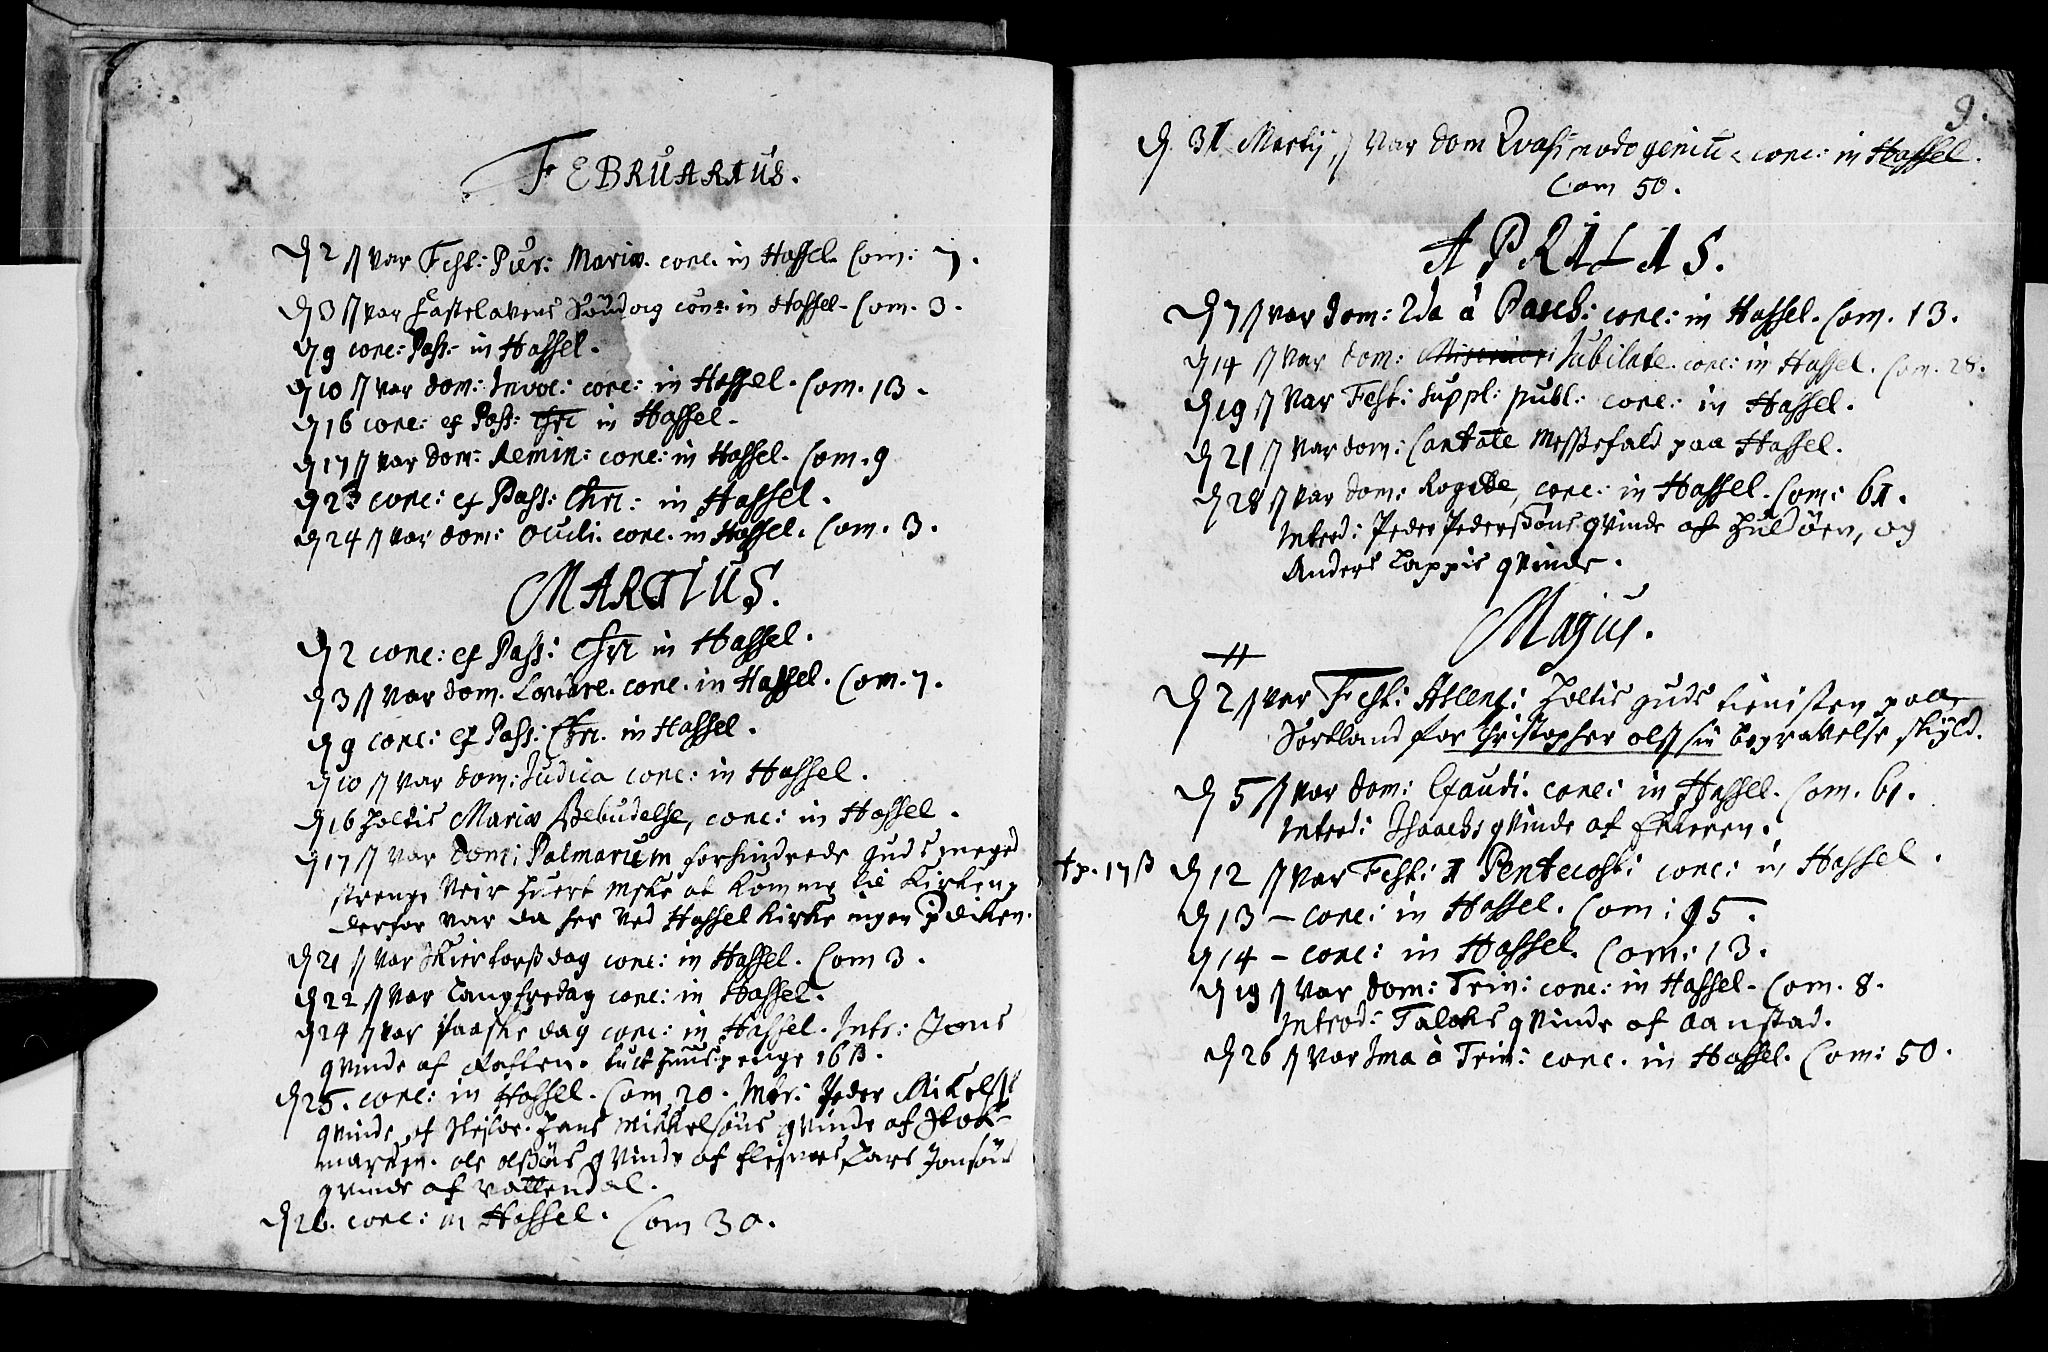 FEBRUARIUS.
D 2 // var Fest: Pur: Mariæ. conc. in Hassel. Com: 7.
D 3 // var Fastelavens Søndag conc: in Hassel. Com. 3.
D 9 conc: Pass: in Hassel.
D 10 // var dom: Invoc: conc: in Hassel. Com. 13.
D 16 conc: ex Pass: Chri in Hassel.
D 17 // var dom: Remin: conc: in Hassel. Com. 9
D 23 conc: ex Pass: Chri: in Hassel.
D 24 // var dom: Oculi. conc. in Hassel. Com. 3.
MARTIUS.
D 2 conc: ex Pass: Chri in Hassel.
D 3 // var dom. Lætare. conc. in Hassel. Com. 7.
D 9 conc: ex Pass: Chri. in Hassel.
D 10 // var dom: Judica conc: in Hassel.
D 16 holtis Mariæ Bebudelse, conc: in Hassel.
D 17 // var dom: Palmarum forhindrede Guds meget
strenge Veir huert Mske at komme til Kirken,
derfor var da her ved Hassel Kirke ingen Prædiken.
D 21 // var Skiertorsdag conc: in Hassel. Com 3.
D 22 // var Langfredag conc: in Hassel.
D 24 // var Paaske dag conc: in Hassel. Intr: Jons
qvinde af Raften. tuct huus penge 16 ß.
D 25. conc: in Hassel. Com. 20. Intr: Peder Mikels:
qvinde af Hans Mickelsøns qvinde af Stok-
marken. Ole Olsøns qvinde af Flesnes Lars Jonsøns
qvinde af Vottendal.
D 26. conc: in Hassel. Com 30.
9.
D. 31 Martij // var dom Qvasimodogeniti conc: in Hassel.
Com 50.
APRILIS.
D 7 // var dom: 2da à Pasch: conc: in Hassel. Com. 13.
D 14 // var dom: Jubilate. conc: in Hassel. Com. 28.
D 19 // var Fest: suppl: publ: conc: in Hassel.
D 21 // var dom: Cantate Messefald paa Hassel.
D 28 // var dom: Rogate, conc: in Hassel. Com: 61.
Introd: Peder Pedersøns qvinde af Huldøen, og
Anders Lappis qvinde.
Majus.
D 2 // var Fest: Ascens: holtis Guds tienisten paa
Sortland for Christopher Ols: sin begravelse skyld.
D 5 // var dom: Exaudi. conc: in Hassel. Com. 61.
Introd: Isaachs qvinde af
tp. 17 ß D 12 // var Fest: 1 Pentecost: conc: in Hassel.
D 13 - conc: in Hassel. Com: 95.
D 14 - conc: in Hassel. Com: 13.
D 19 // var dom: Trin: conc: in Hassel. Com. 8.
Introd: Falchs qvinde af Aanstad.
D 26 // var 1ma à Trin: conc. in Hassel. Com: 50.